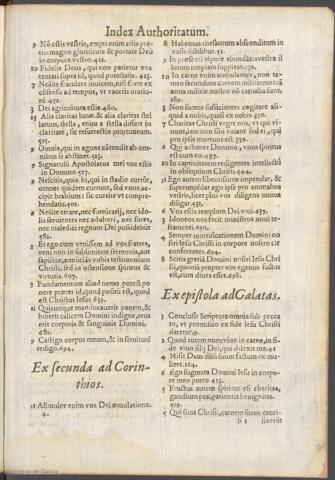 Index Authoritatum.
9 Nō estis vestris, empti enim estis pretio magno glorificate & portate Deū
in corpore vestro.422.
10 Fidelis Deus, qui non patietur vos
tentari supra id, quod potestatis. 423.
7 Nolite fraudare invicem, nisi forte ex
cōsensu ad tempus, vt vacetis orationi.
3 Dei agricultura estis.480.
15 Alia claritas lunæ: & alia claritas stellarum,
stella, enim a stella differt in
claritate, sic & resurrectio mortuorum.
9 Omnis, qui in agone cōtendit ab omnibus
se abstinet.523.
9 Signaculū Apostolatus mei vos estis
in Domino.527.
9 Nescitis, quia hi, qui in stadio currūt,
omnes quidem currunt, sed vnus accipit
brabium: sic currite vt comprehendatis.
6 Nolite errare, nec fornicarij, nec idolis
servientes nec adulteri, nec fures,
nec maledici regnum Dei possidebūt
582.
2 Et ego cum venissem ad vos fratres,
veni non in sublimitate sermonis, aut
sapiētiæ, annūcians vobis testimonium
Christi, sed in ostensione spiritus &
virtutis.
3 Fundamentum aliud nemo potest ponere
præter id, quod positū est, quod
est Christus Iesus.639.
11 Quicunque manducaverit panem, &
biberit calicem Domini indigne, reus
erit corporis & sanguinis Domini.
681.
9 Castigo corpus meum, & in servitutē
redigo.694.
Ex secunda ad Corinthios.
11 AEmulor enim vos Dei æmulatione.
4.
8 Habemus thesaurum absconditum in
vasis fictilibus.
9 In præsenti tēpore abundātia vestra illorum
inopiam suppleat.
10 In carne enim ambulantes, non tamen
secundum carnem militamus, nā
arma militiæ nostræ nō carnalia sunt.
3 Non sumus sufficientes cogitare aliquid
a nobis, quasi ex nobis.370.
5 Charitas Christi vrget nos, vt qui vivunt,
iam non sibi vivant sed ei, qui
pro ipsis mortuus est.379.
6 Qui adhæret Domino, vnus spiritus
est cum eo.487.
10 In captivitatem redigentes intellectū
in obsequium Christi.504.
11 Ego autem libentissime impendar, &
superimpēdar ego ipse pro animabus
vestris, licet plus vos diligens minus
diligar.
6 Vos estis templum Dei vivi.637.
3 Idoneos nos fecit ministros novi testamenti.
4 Semper mortificationem Domini nostri
Iesu Christi in corpore nostro circumferentes.694.
8 Scitis gratiā Domini nostri Iesu Christi,
quoniā propter vos egenus factus
est, cum dives esset.658.
Ex epistola ad Galatas.
3 Conclusit Scriptura omnia sub peccato,
vt promissio ex fide Iesu Christi
daretur.
2 Quod autem nunc vivo in carne, in fide
vivo filij Dei, qui dilexit me.41
4 Misit Deus filiū suum factum ex muliere.
6 Ego stigmata Domini Iesu in corpore
meo porto.
5 Fructus autem spiritus est charitas,
gaudium pax, patientia benignitas.
519.
5 Qui sunt Christi, carnem suam cruci-
b 1 fixerūt